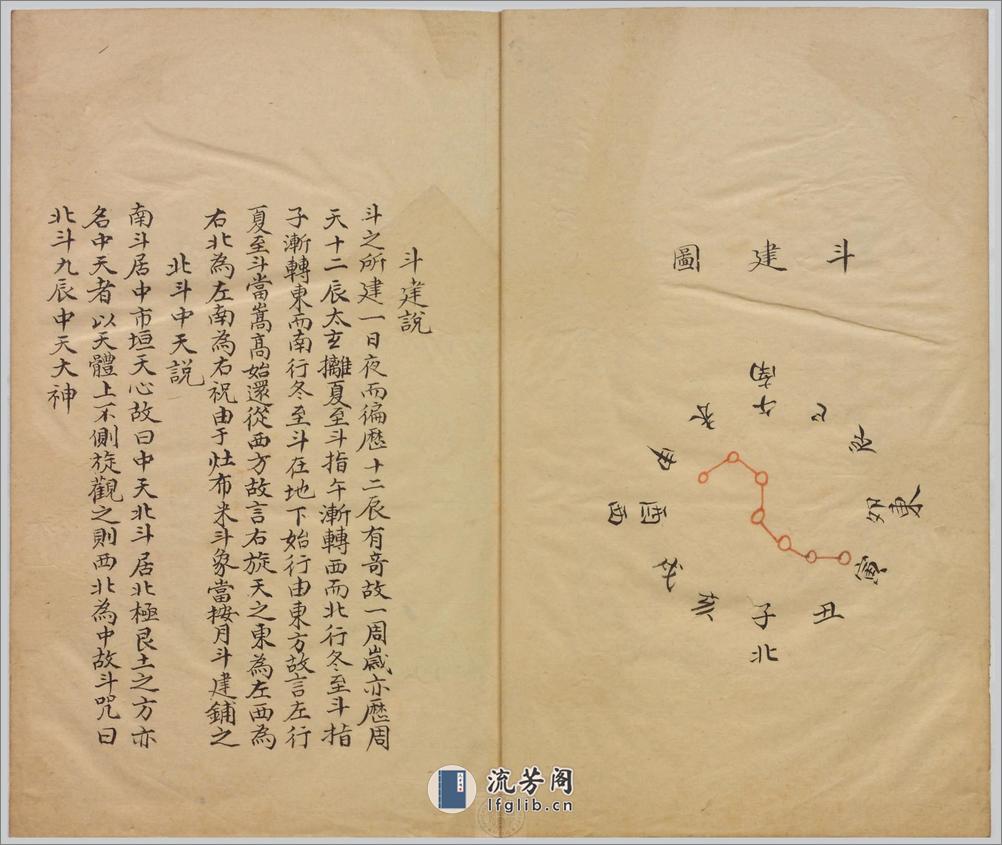 斗建圖
南
午
巳
辰
卯東
寅
丑
子
北
亥
戌
酉西
申
未
斗建說
斗之所建一日夜而徧歷十二辰有奇故一周歲亦歷周
天十二辰太玄攡夏至斗指午漸轉西而北行冬至斗指
子漸轉東而南行冬至斗在地下始行由東方故言左行
夏至斗當嵩高始還從西方故言右旋天之東為左西為
右北為左南為右祝由于灶布米斗象當按月斗建鋪之
北斗中天説
南斗居中市垣天心故曰中天北斗居北極艮土之方亦
名中天者以天體上不側旋觀之則西北為中故斗咒曰
北斗九辰中天大神
流芳阁
lfglib.cn